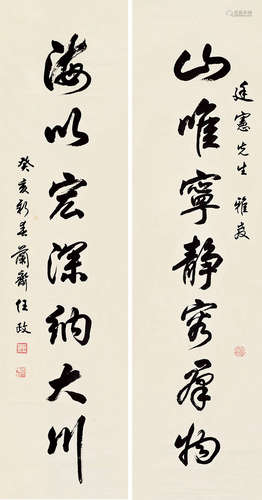 廷憲先生 雅教
山唯寧静容羣物
海以宏深納大川
癸亥新春蘭齋任政